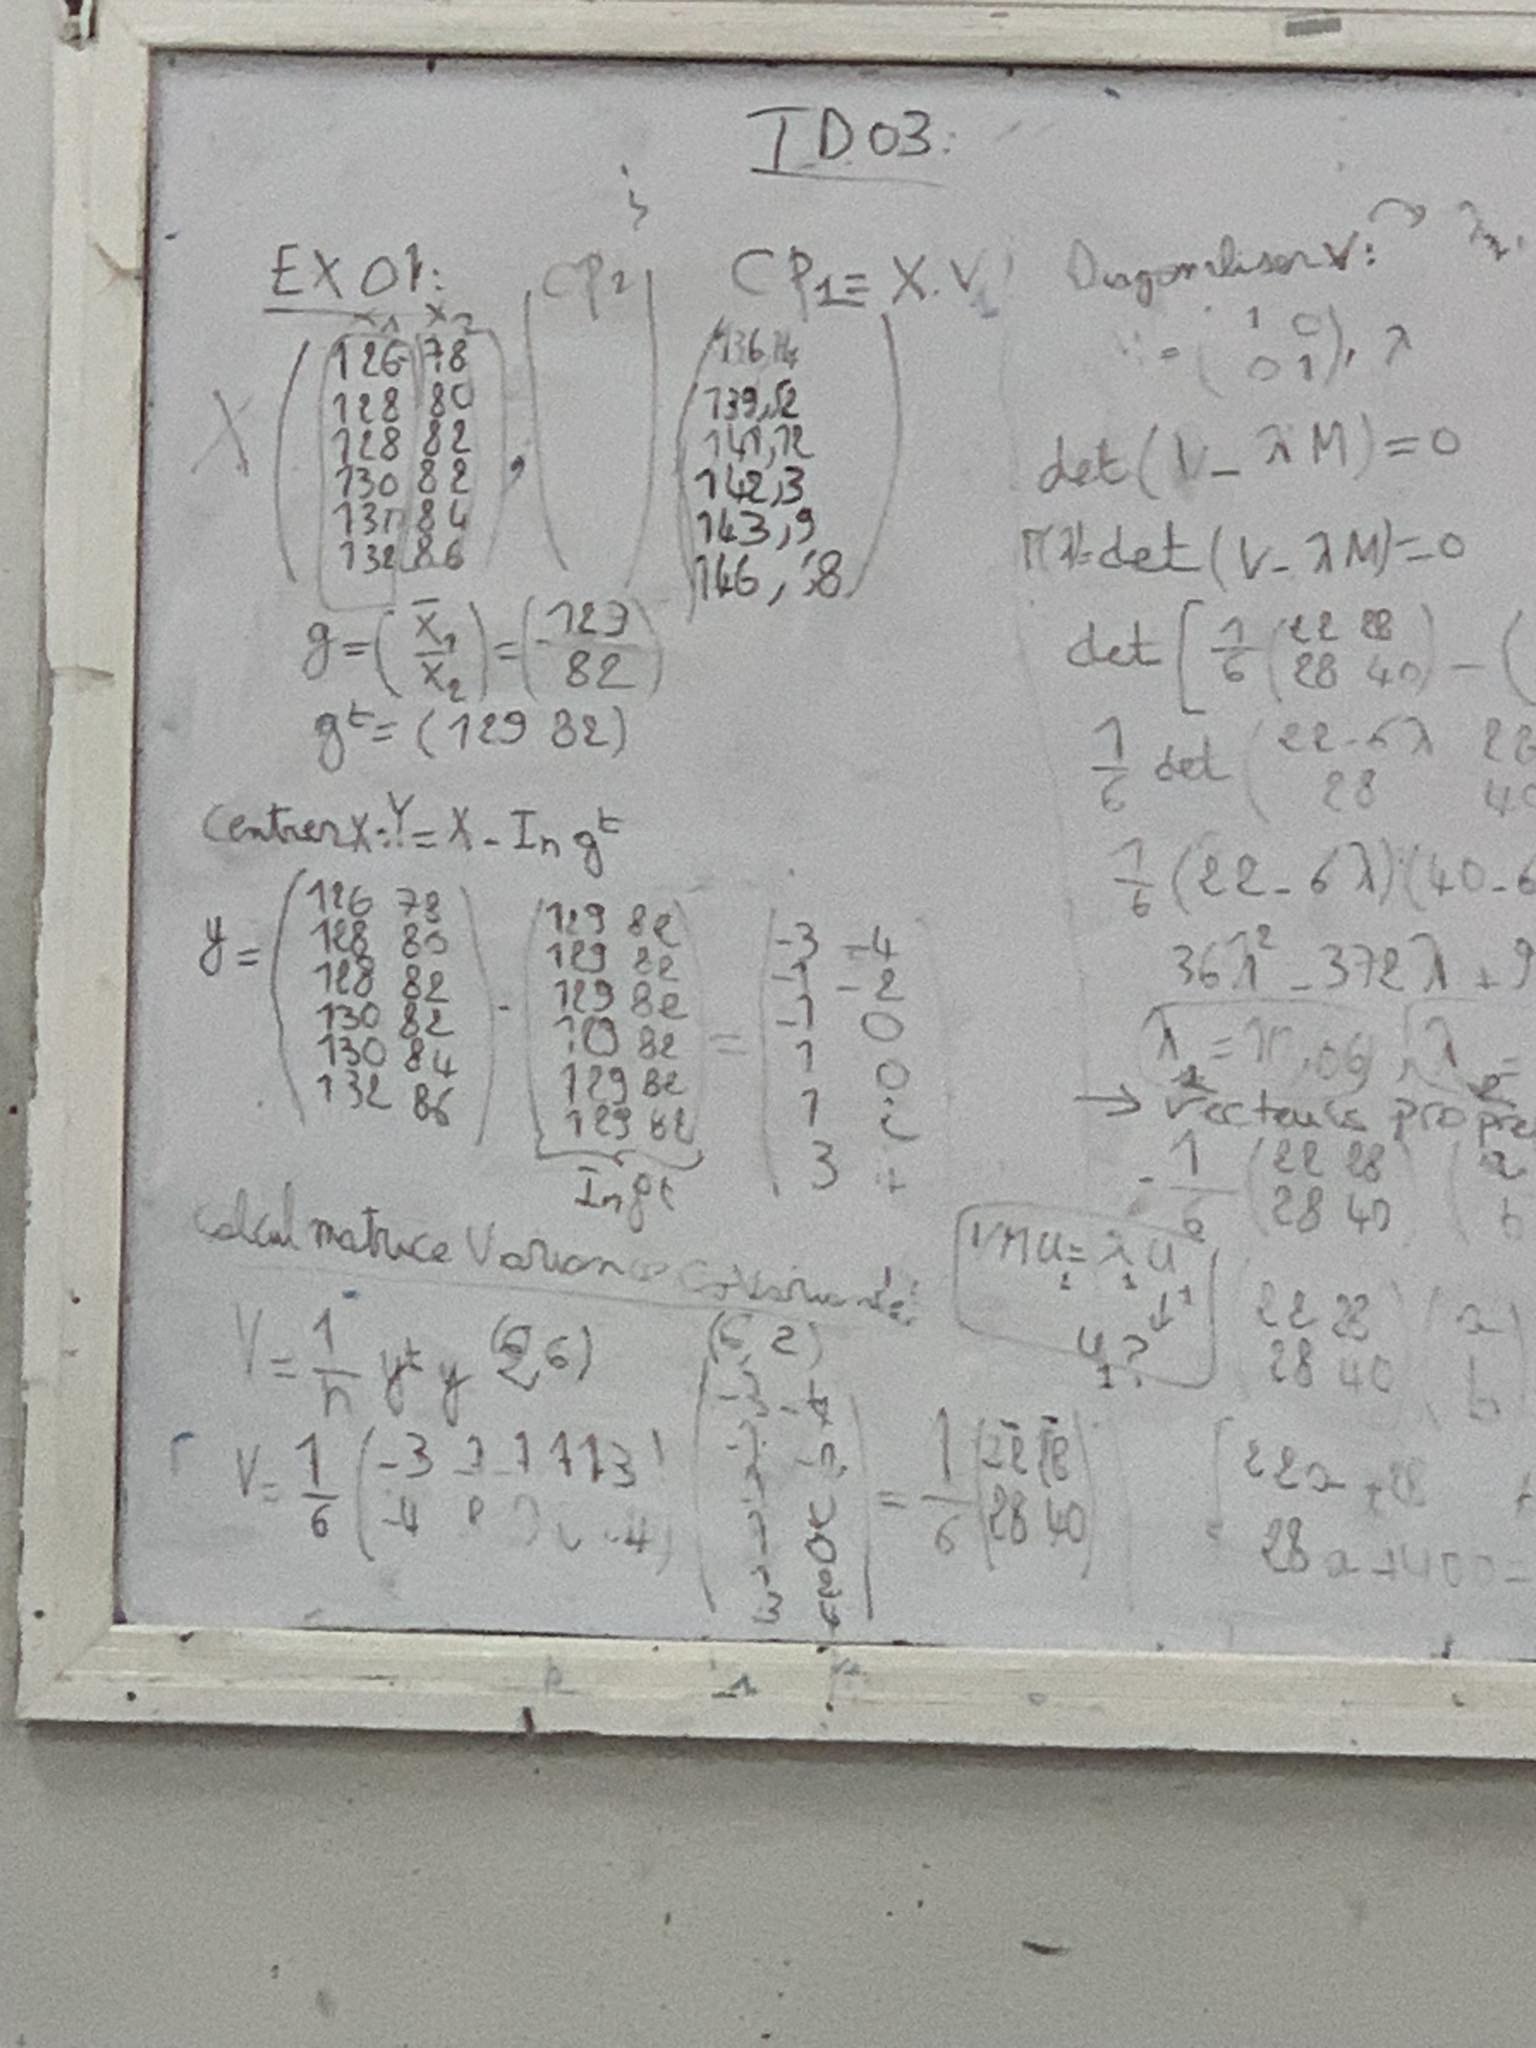 TD 03:
EX 01:
CP2
CP1 = X.V
x1 x2
X
126 78
128 80
128 82
130 82
130 84
132 86
139,52
141,12
142,3
143,9
146,58
g = (x̄1 x̄2) = (129 82)
gᵗ = (129 82)
Centrer X: Y = X - In gᵗ
y =
126 78
128 80
128 82
130 82
130 84
132 86
-
129 82
129 82
129 82
129 82
129 82
129 82
In gᵗ
=
-3 -4
-1 -2
-1 0
1 0
1
3
Calcul matrice Variance Covariance:
V = 1/n yᵗ y (2,6) (6,2)
V = 1/6
= 1/6 (22 28
28 40)
Diagonaliser V:
= (1 0
0 1), λ
det(V - λM) = 0
det(V - λM) = 0
det [1/6 (22 28
28 40) - (
1/6 det (22-6λ 28
28 40
1/6 (22-6λ)(40-6
36λ² - 372λ + 9
λ1 = 10,06 λ2 =
→ Vecteurs propre
1/6 (22 28
28 40) (a
b
VMU1 = λ1 U1
U1?
(22 28
28 40) (a
b)
22a + 28
28a + 40b =